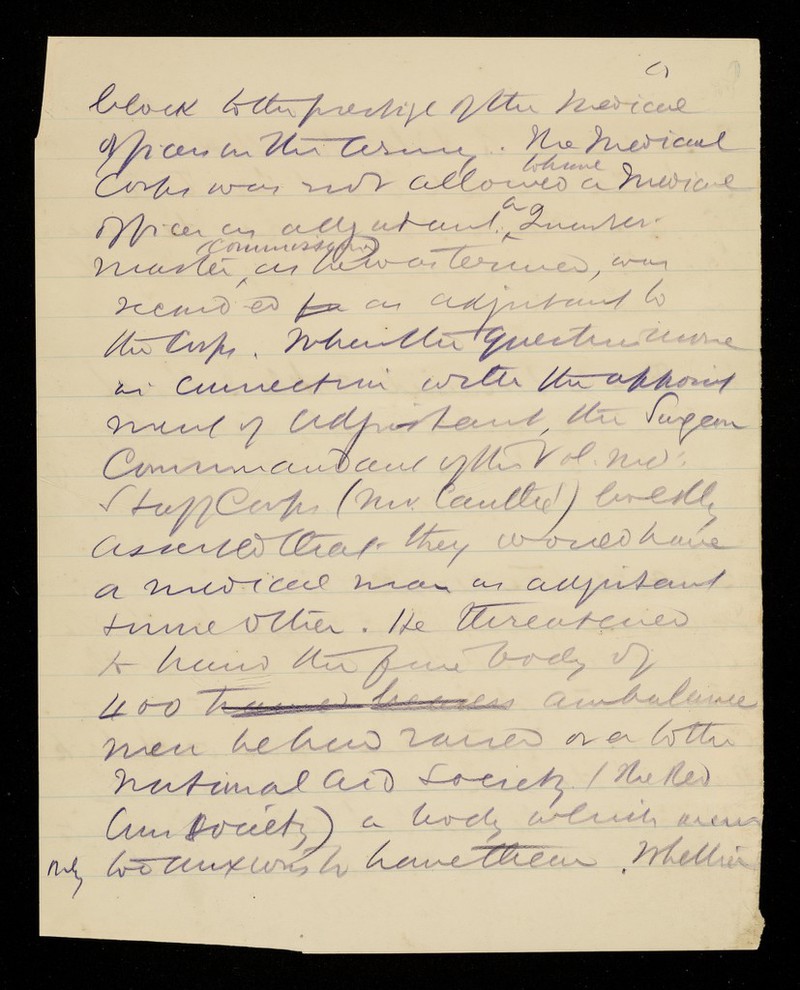 block to the prestige of the medical
officers in the Army. The Medical
to have
Corps was not allowed a medical
officer as adjutant. a Quarter
(Commissary)
master, as he was termed, was
as adjutant to
the Corps. When the question arose
in connection with the appoint
ment of adjutant, the Surgeon
Commandant of the Vol. Med.
Staff Corps (Mr. Cantlie) boldly
asserted that they would have
a medical man as adjutant
some other. He threatened
to hand the fine body of
400 trained bearers ambulance
men he had raised over to the
National Aid Society (The Red
Society) a body which
only too anxious to have them. Whether